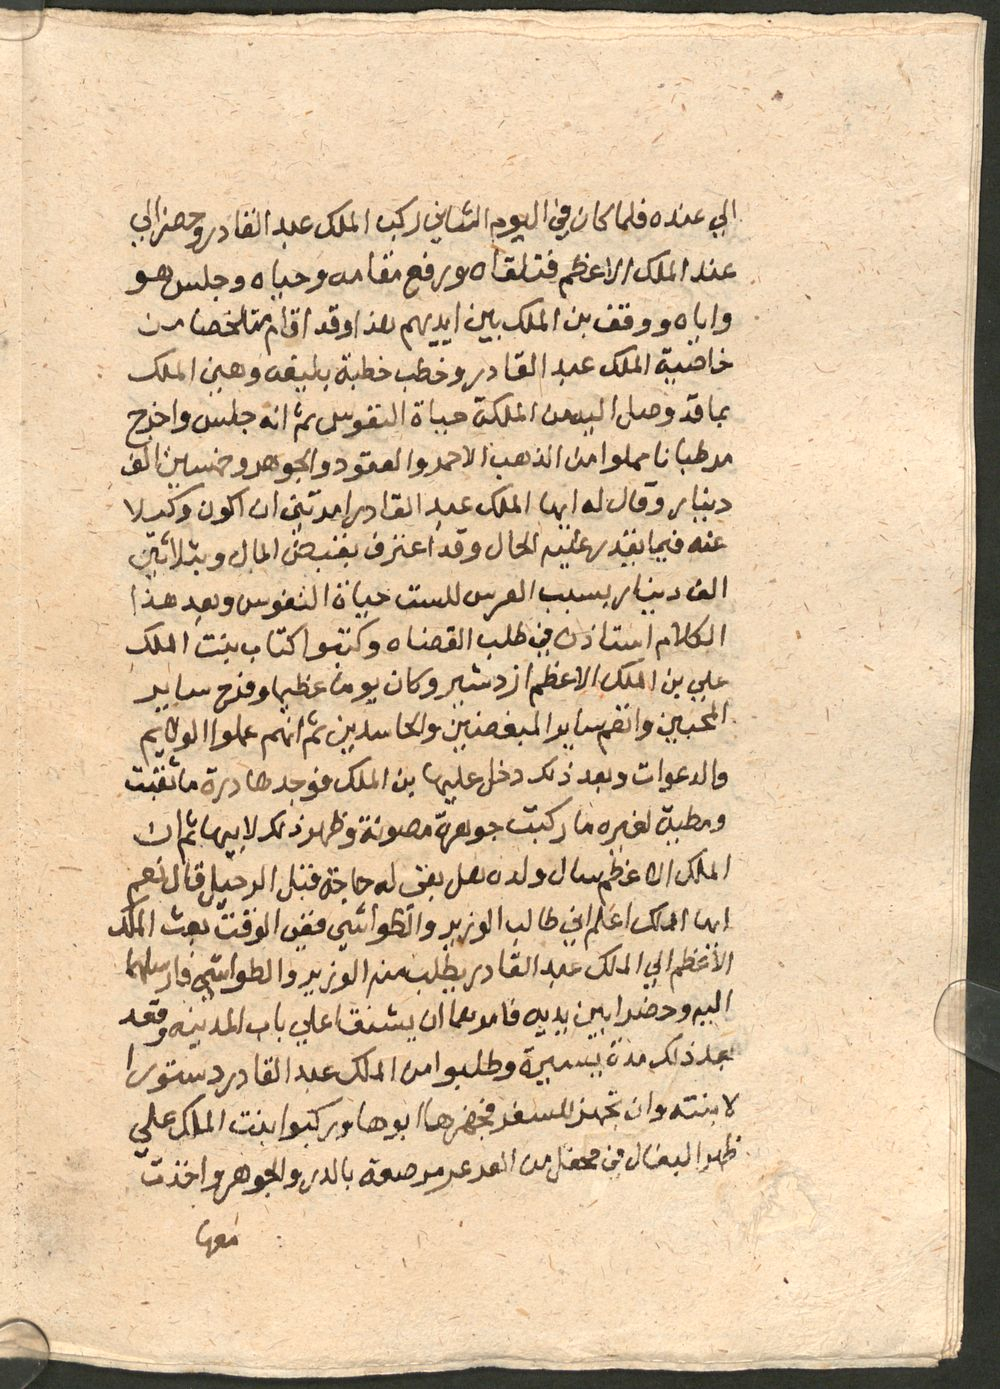 الي عنده فلما كان في اليوم الثاني ركب الملك عبد القادر وحضر الي
عند الملك الاعظم فتلقاه ورفع مقامه وحياه وجلس هو
واياه ووقف بن الملك بين ايديهم هذا وقد اقام شخصا من
خاصية الملك عبد القادر وخطب خطبة بليغه وهني الملك
بما قد وصل اليه من الملكة حياة النفوس ثم انه جلس واخرج
مرطبانا مملوا من الذهب الاحمر والعقود والجوهر وخمسين الف
دينار وقال له ايها الملك عبد القادر امرتني ان اكون وكيلا
عنه فيما يتقرر عليه الحال وقد اعترف بقبض المال وبثلاثين
الف دينار بسبب العرس للست حياة النفوس وبعد هذا
الكلام استاذن في طلب القضاه وكتبوا كتاب بنت الملك
علي بن الملك الاعظم ازدشير وكان يوما عظيما وفرح ساير
المحبين وانقهر ساير المبغضين والحاسدين ثم انهم عملوا الولايم
والدعوات وبعد ذلك دخل عليها بن الملك فوجدها درة ما ثقبت
ومطية لغيره ما ركبت جوهرة مصونة وظهر ذلك لابيها ثم ان
الملك الاعظم سال ولده هل بقى له حاجة قبل الرحيل قال نعم
ايها الملك اعلم اني طالب الوزير والطواشي ففي الوقت بعث الملك
الأعظم الي الملك عبد القادر يطلب منه الوزير والطواشي فارسلهما
اليه وحضرا بين يديه فامر بهما ان يشنقا علي باب المدينه وقعد
بعد ذلك مدة يسيرة وطلبوا من الملك عبد القادر دستورا
لابنته وان تجهز للسفر فجهزها ابوها وركبوا بنت الملك علي
ظهر البغال في محفل من العرعر مرصعة بالدر والجوهر واخذت
معها